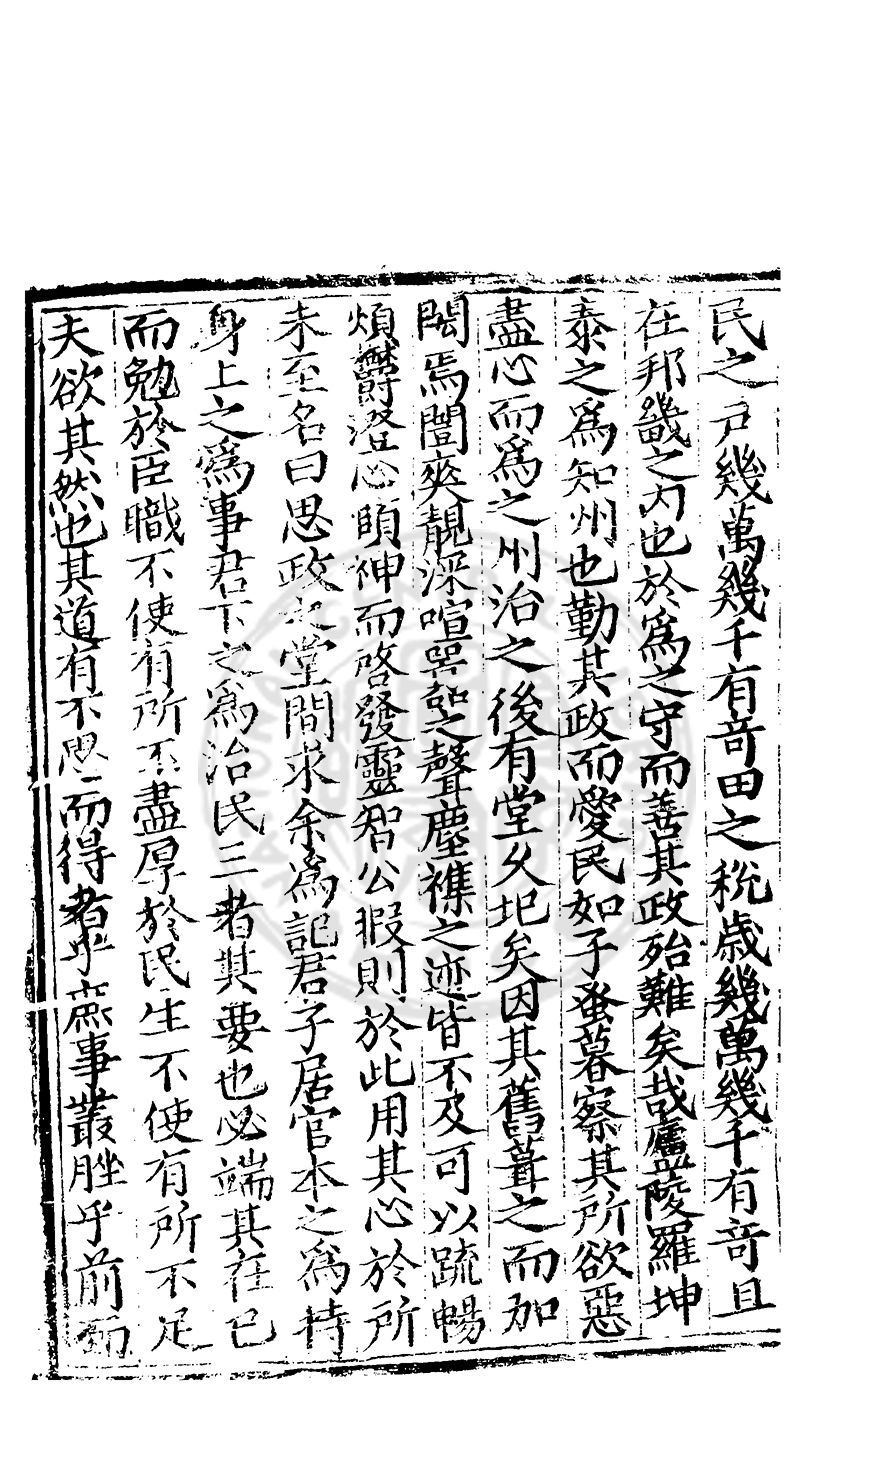 民之戸幾萬幾千有竒田之稅歳幾萬幾千有竒且
在邦畿之内也於爲之守而善其政殆難矣哉廬陵羅坤
泰之爲知州也勤其政而愛民如子蚤暮察其所欲惡
盡心而爲之州治之後有堂久圮矣因其舊葺之而加
閎焉闓爽靚深喧嚣之聲塵襍之迹皆不及可以疏暢
煩欝澄心頤神而啓發靈智公暇則於此用其心於所
未至名曰思政之堂間求余爲記君子居官本之爲持
身上之爲事君下之爲治民三者其要也必端其在已
而勉於臣職不使有所不盡厚於民生不使有所不足
夫欲其然也其道有不思而得者乎庶事叢脞乎前而